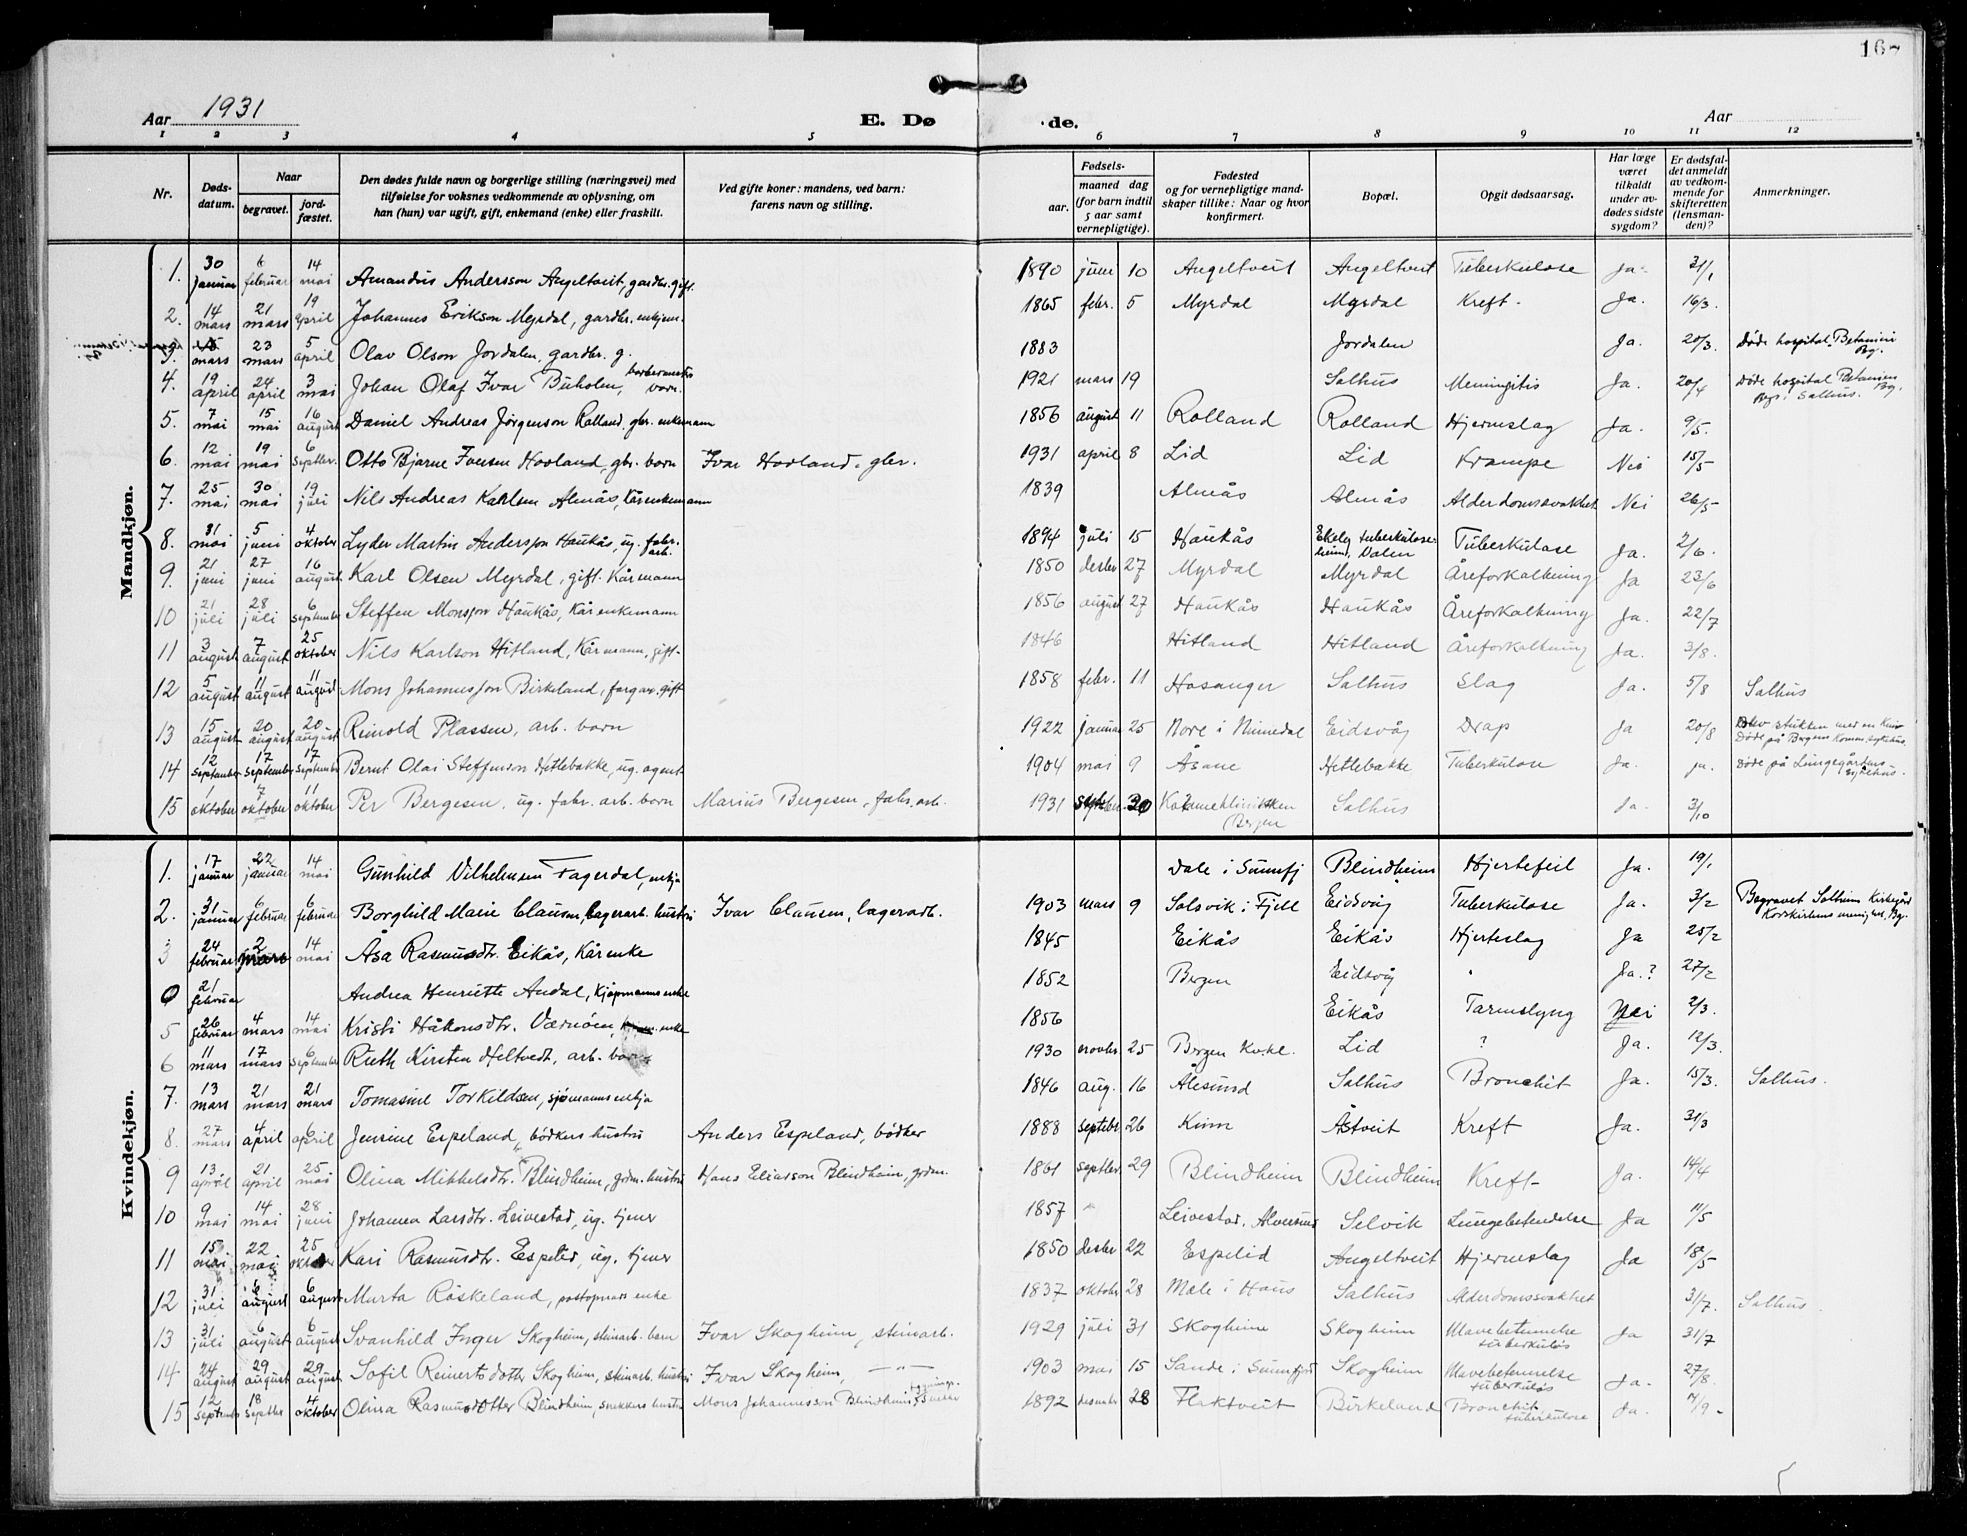 167
Aar 1931
E. Dø de.
Aar
1 2 3 4 5 6 7 8 9 10 11 12
Nr. Døds-datum. Naar begravet. jord-fæstet. Den dødes fulde navn og borgerlige stilling (næringsvei) med tilføielse for voksnes vedkommende av oplysning, om han (hun) var ugift, gift, enkemand (enke) eller fraskilt. Ved gifte koner: mandens, ved barn: farens navn og stilling. Fødsels- aar. maaned dag (for barn indtil 5 aar samt vernepligtige). Fødested og for vernepligtige mandskaper tillike: Naar og hvor konfirmert. Bopæl. Opgit dødsaarsag. Har læge været tilkaldt under avdødes sidste sygdom? Er dødsfaldet anmeldt av vedkommende for skifteretten (lensmanden)? Anmerkninger.
Mandkjøn.
1. 30 januar 6 februar 14 mai Amandus Andersson Angeltveit, gardbr. gift. 1890 juni 10 Angeltveit Angeltveit Tuberkulose Ja. 31/1
2. 14 mars 21 mars 19 april Johannes Erikson Myrdal, gardbr. enkjem. 1865 febr. 5 Myrdal Myrdal Kreft. Ja. 16/3.
3. mars 23 mars 5 april Olav Olson Jordalen, gardbr. g. 1883 Jordalen Ja. 20/3. Døde hospital Betanien Bg.
4. 19 april 24 april 3 mai Johan Olaf Ivar Buholm, barn. 1921 mars 19 Salhus Meningitis Ja. 20/4 Døde hospital Betanien Bg. Salhus.
5. 7 mai 15 mai 16 august Daniel Andreas Jørgenson Rolland. gbr. enkemann 1856 august 11 Rolland Rolland Hjerneslag Ja. 9/5.
6. 12 mai 19 mai 6 septbr. Otto Bjarne Iversen Hovland, gbr. barn Ivar Hovland, gbr. 1931 april 8 Lid Lid Krampe Nei 15/5
7. 25 mai 30 mai 19 juli Nils Andreas Karlsen Almås, kårenkemann 1839 Almås Almås Alderdomssvakhet Nei 26/5
8. 31 mai 5 juni 4 oktober Lyder Martin Andersson Haukås, ug. fabr. arb. 1894 juli 15 Haukås Ekely tuberkuloseheim, Valen Tuberkulose Ja. 2/6.
9. 21 juni 27 juni 16 august Karl Olsen Myrdal, gift. Kårmann 1850 desbr 27 Myrdal Myrdal Åreforkalkning Ja 23/6
10 21 juli 28 juli 6 september Steffen Monsson Haukås, Kårenkemann 1856 august 27 Haukås Haukås Åreforkalkning Ja. 22/7
11 3 august 7 august 25 oktober Nils Karlson Hitland, Kårmann, gift. 1846 Hitland Hitland Åreforkalkning Ja. 3/8.
12 5 august 11 august 11 august Mons Johannesson Birkeland, fargar. gift 1858 febr. 11 Hosanger Salhus Slag Ja. 5/8 Salhus
13 15 august 20 august 20 august Reinold Plassen, arb. barn 1922 januar 25 Nore i Numedal Eidsvåg Drap Ja 20/8 Blev stukken med en Kniv Døde på Bergens Komm. sykehus.
14 12 september 17 september 17 september Bernt Olai Steffenson Hetlebakke, ug. agent 1904 mai 9 Åsane Hetlebakke Tuberkulose Ja. ja. Døde på Lungegårdens sykehus.
15 1 oktober 7 oktober 11 oktober Per Bergesen, ug. fabr. arb. barn Marius Bergesen, fabr. arb. 1931 septbr. 30 Bergen Salhus Ja. 3/10
Kvindekjøn.
1. 17 januar 22 januar 14 mai Gunhild Vilhelmsen Fagerdal, enkja Dale i Sunnfj Blindheim Hjertefeil Ja. 19/1
2. 31 januar 6 februar 6 februar Borghild Marie Clausen, lagerarb. hustru Ivar Clausen, lagerarb. 1903 mars 9 Solsvik i Fjell Eidsvåg Tuberkulose Ja. 3/2 Begravet Salhus Kirkegård Korskirkens menighet, Bg.
3 24 februar 2 mars 14 mai Åsa Rasmusdtr. Eikås, Kårenke 1845 Eikås Eikås Hjerteslag Ja 25/2
21 februar Andrea Henriette Andal, Kjøpmannsenke 1852 Bergen Eidsvåg " Ja.? 27/2
5 26 februar 4 mars 14 mai Kristi Håkonsdtr. Værnøen, enke 1856 Eikås Tarmslyng Nei 2/3.
6 11 mars 17 mars 6 september Ruth Kirsten Heltvedt, arb. barn 1930 novbr 25 Bergen Kv.kl. Lid ? Ja. 12/3.
7. 13 mars 21 mars 21 mars Tomasine Torkildsen, sjømannsenkja 1846 aug. 16 Ålesund Salhus Bronchit Ja. 15/3. Salhus.
8. 27 mars 4 april 6 april Jensine Espeland, bødkers hustru Anders Espeland, bødker 1888 septbr 26 Kinn Åstveit Kreft Ja. 31/3
9 13 april 21 april 25 mai Olina Mikkelsdtr. Blindheim, grdm. hustru Hans Eliasson Blindheim, grdm. 1861 septbr. 29 Blindheim Blindheim Kreft Ja. 14/4
10 9 mai 14 mai 28 juni Johanna Larsdtr. Leivestad, ug. tjener 1857 " Leivestad, Alversund Selvik Lungebetendelse Ja 11/5
11 15 mai 22 mai 25 oktober Kari Rasmusdtr. Espelid, ug. tjener 1850 desbr 22 Espelid Angeltveit Hjerneslag Ja 18/5
12 31 juli 6 august 6 august Marta Røskeland, postopnars enke 1837 oktober 28 Mæle i Haus Salhus Alderdomssvakhet 31/7. Salhus
13 31 juli 6 august 6 august Svanhild Inger Skogheim, steinarb. barn Ivar Skogheim, steinarb. 1929 juli 31 Skogheim Skogheim Mavebetennelse tuberkuløs Ja 31/7
14 24 august 29 august 29 august Sofie Reinertsdotter Skogheim, steinarb. hustru Ivar Skogheim, —"— 1903 mai 15 Sande i Sunnfjord Skogheim Mavebetennelse tuberkuløs Ja. 27/8.
15 12 septembr 18 septbr 4 oktober Olina Rasmusdotter Blindheim, snekkers hustru Mons Johannsson Blindheim, snekker 1892 desember 28 Flaktveit Birkeland Bronchit tuberkulose Ja. 14/9.